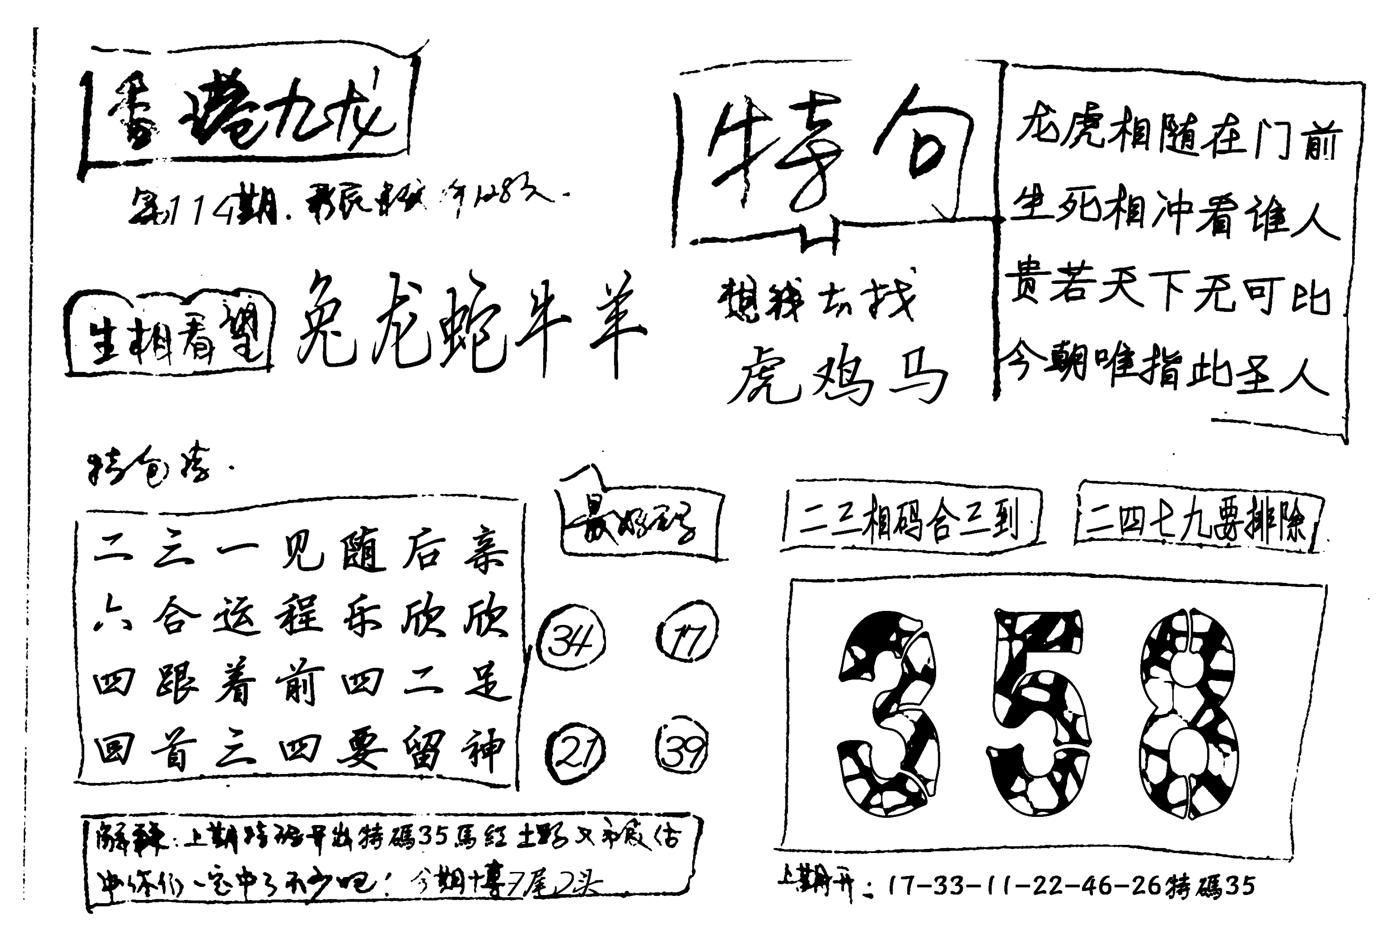 香港九龙
第114期.
生相看望
兔龙蛇牛羊
特句
想我去找
虎鸡马
龙虎相随在门前
生死相冲看谁人
贵若天下无可比
今朝唯指此圣人
二三一见随后亲
六合运程乐欣欣
四跟着前四二足
回首三四要留神
最好
34 17
21 39
二三相码合三到
二四七九要排除
358
解释：上期特码开出特碼35馬红土
中了不少吧！今期十尊7尾2头
上期开：17-33-11-22-46-26特碼35